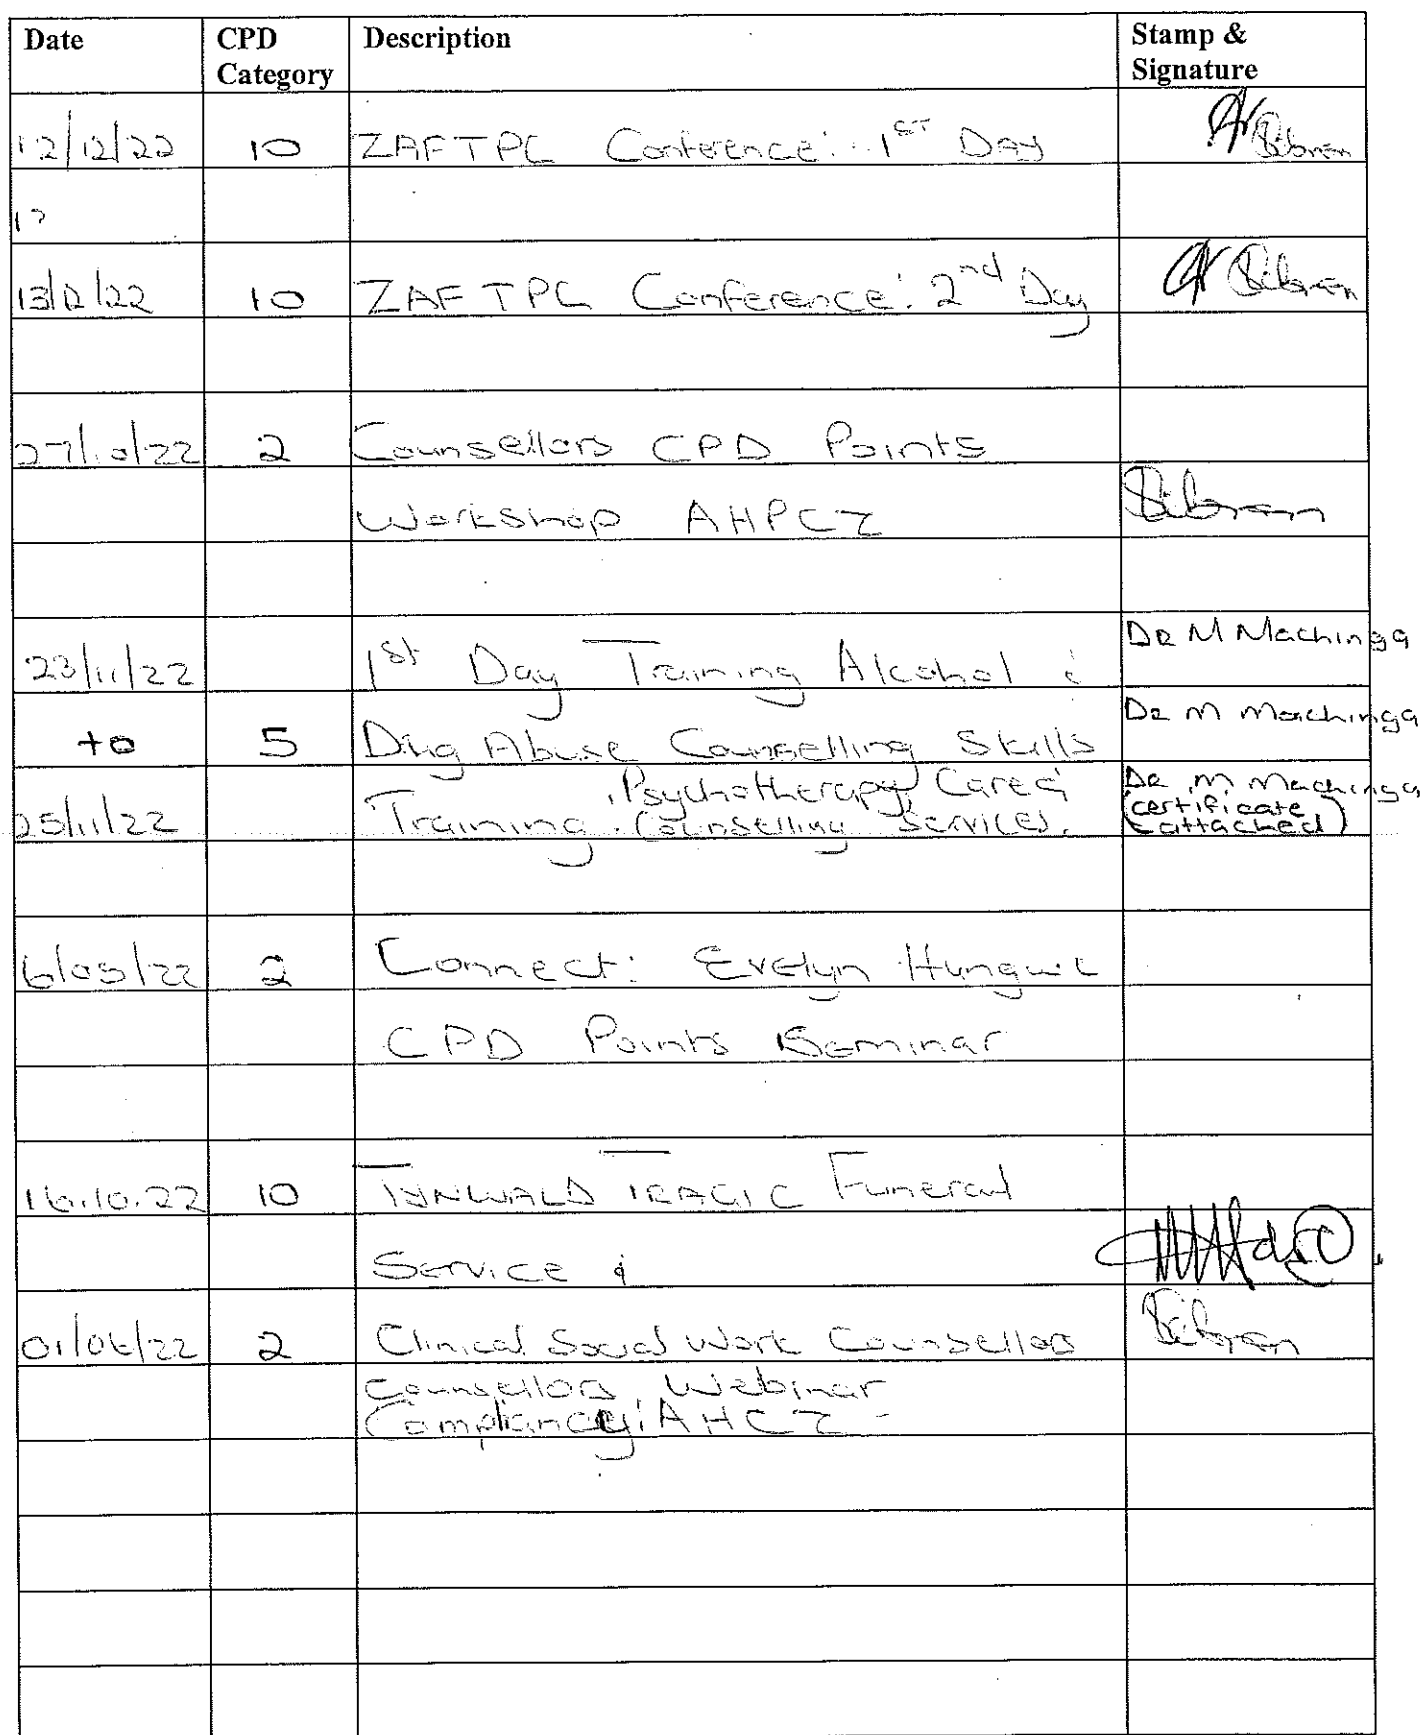 Date CPD Category Description Stamp & Signature
12/12/22 10 ZAFTPC Conference: 1ST DAY
13/12/22 10 ZAFTPC Conference: 2nd Day
27/10/22 2 Counsellors CPD Points
Workshop AHPCZ
23/11/22 1st Day Training Alcohol & DR M Machinga
to 5 Drug Abuse Counselling Skills DR M Machinga
25/11/22 Training, Psychotherapy, Care & Counselling Services. DR M Machinga (certificate attached)
6/05/22 2 Connect: Evelyn
CPD Points Seminar
16.10.22 10 TYNWALD TRAGIC Funeral
Service &
01/06/22 2 Clinical Social Work Counsellors
Counsellors, Webinar
Compliancy: AHCZ -